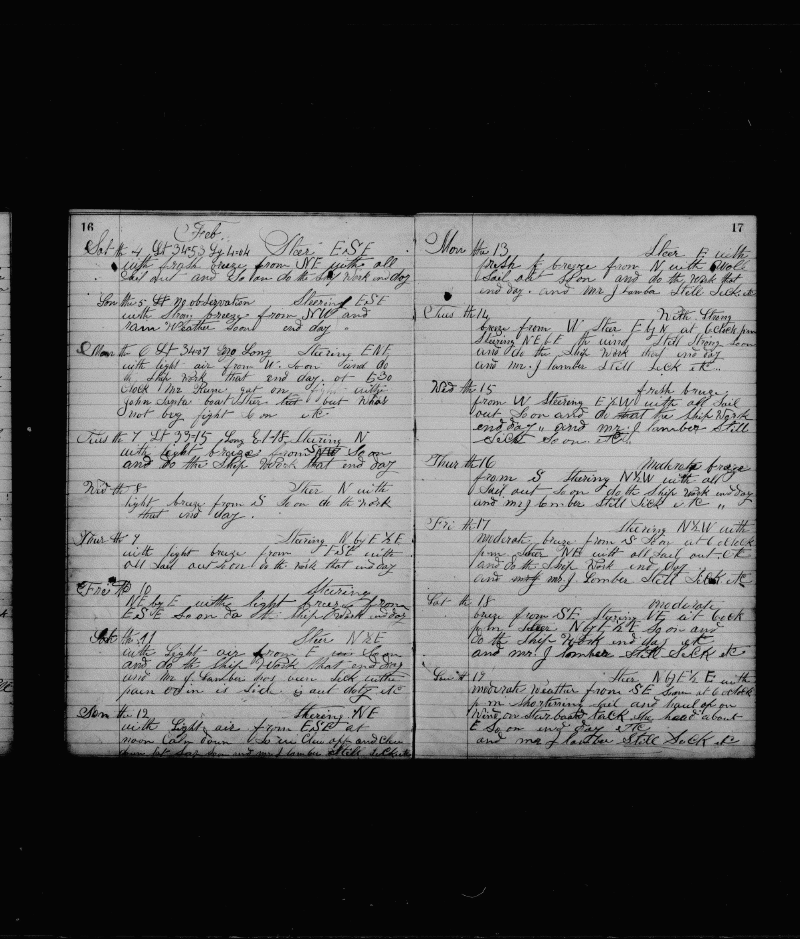 16
Feb
Sat th 4 Lt 3453 Lg 4404 Steer ESE
with fresh breeze from NE with all
sail out and So on do the Ship Work end day
Son the 5 Lt no observation Steering ESE
with Strong breeze from NW and
rain Weather Soon end day
Mon th 6 Lt 3407 no Long Steering ENE
with light air from W. So on and do
th Ship Work that end day. at 530
Clock Mr. got on fight with
John Santa boat Steer but Was
not big fight So on etc
Tues th 7 Lt 3315 Long 41-18 Steering N
with light breeze from So on
and do the Ship Work that end day
Wid th 8 Steer N with
light breeze from S Soon do the Work
that end day.
Thur th 9 Steering N by E ½ E
with light breeze from ESE with
all Sail out Soon do the Work that end day
Fri th 10 Steering
NE by E withe light breeze from
ESE So on do th Ship Work end day
Sat th 11 Steer N ½ E
with Light air from E So on
and do the Ship Work that end day
and Mr. J Lamber has been Sick withe
pain in is Side is out duty etc
Son the 12 Steering NE
with Light air from ESE at
noon Calm down So on and
Soon and mr. J lamber Still Sick etc
17
Mon the 13 Steer E with
fresh breeze from N with Whole
Sail out Soon and do the Work that
end day. and Mr J lamba Still Sick etc
Tues the 14 With Strong
breeze from W. Steer E by N at 6 clock p.m
Steering NE b E th wind Still Strong Soon
and do the Ship Work that end day
and mr. J lamber Still Sick etc..
Wid th 15 fresh breeze
from W Steering E ½ W with all Sail
out Soon and do the Ship Work
end day " and mr. J lamber Still
Sick Soon. etc
Thur th 16 moderate breeze
from S Steering N ½ W with all
Sail out So on do the Ship Work end day
and mr. J lomber Still Sick etc "
Fri th 17 Steering N ½ W with
moderate breeze from S Soon at 6 oclock
p.m Steer NE with all Sail out. etc
and do the Ship Work end day
and mr. J Lomber Still Sick etc
Sat th 18 moderate
breeze from SE Steering NE at 6 ock
p.m Steer N by E ½ E So on and
do the Ship Work end day etc
and mr. J lomber Still Sick etc
Son th 19 Steer N by E ½ E with
moderate Weather from SE Soon at 6 oclock
p m Shortening Sail and haul op on
Wind on Starboard tack Ship head about
E So on end day etc
and mr J lamber Still Sick etc